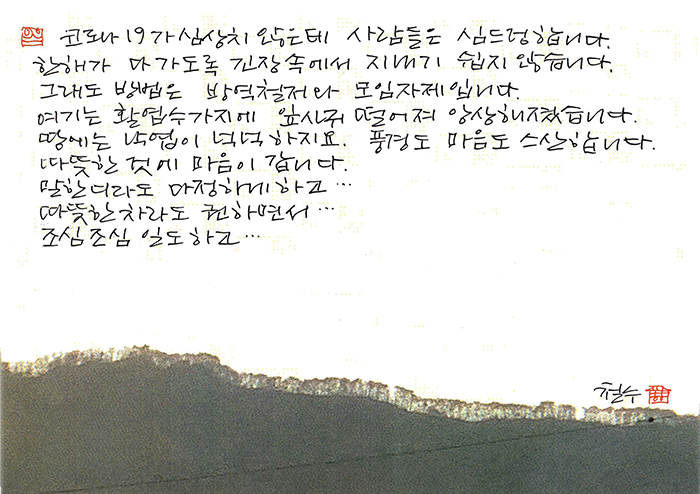 코로나19가 심상치 않은데 사람들은 심드렁합니다.
한해가 다 가도록 긴장속에서 지내기 쉽지 않습니다.
그래도 방법은 방역철저와 모임자제입니다.
여기는 활엽수가지에 잎사귀 떨어져 앙상해졌습니다.
땅에는 낙엽이 넉넉하지요. 풍경도 마음도 스산합니다.
따뜻한 것에 마음이 갑니다.
말한디라도 다정하게 하고…
따뜻한 차라도 권하면서…
조심조심 일도 하고…
철수